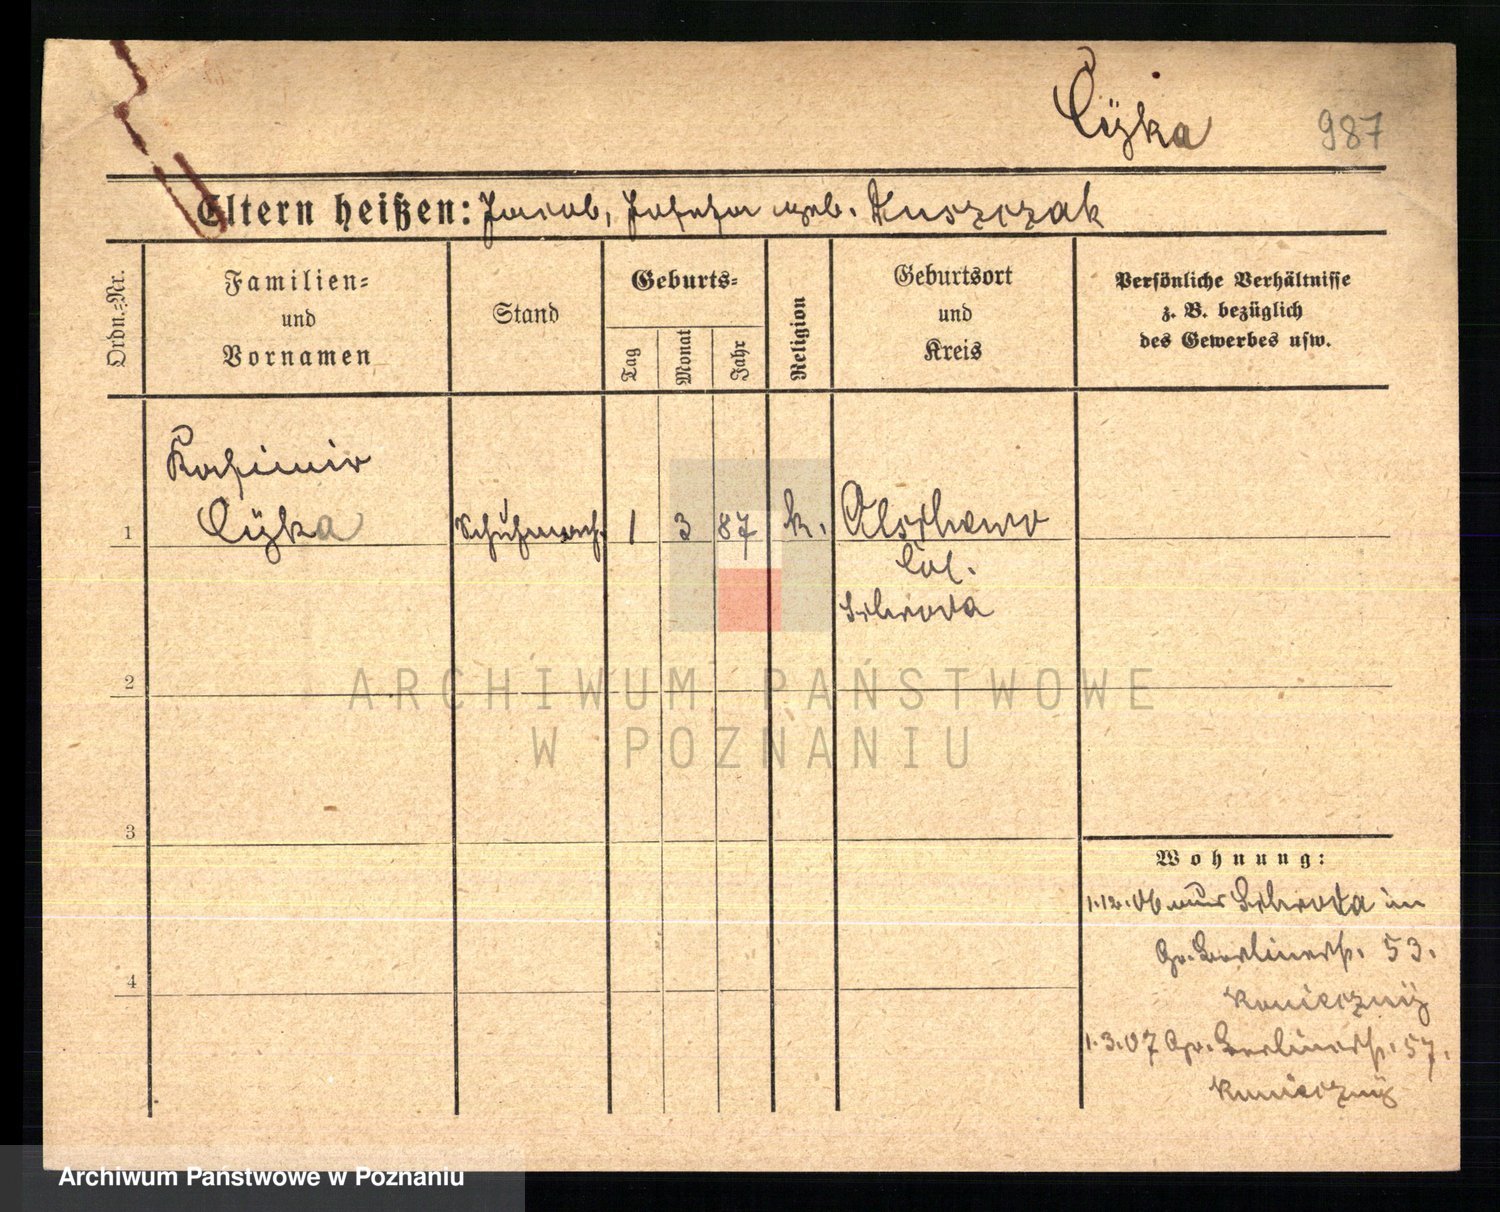 Cÿzka
987
Eltern heißen: Jacob, Josefa geb. Kuszczak
Ordn.-Nr.
Familien-
und
Vornamen
Stand
Geburts-
Tag
Monat
Jahr
Religion
Geburtsort
und
Kreis
Persönliche Verhältnisse
z. B. bezüglich
des Gewerbes usw.
Kasimir
1 Cÿzka Schuhmach. 1 3 87 k.
Col.
Schroda
2
3
4
ARCHIWUM PAŃSTWOWE
W POZNANIU
Wohnung:
1.12.06 aus Schroda in
Gr. Berlinerstr. 53.
Konieczny
1.3.07 Gr. Berlinerstr. 57.
Konieczny
Archiwum Państwowe w Poznaniu